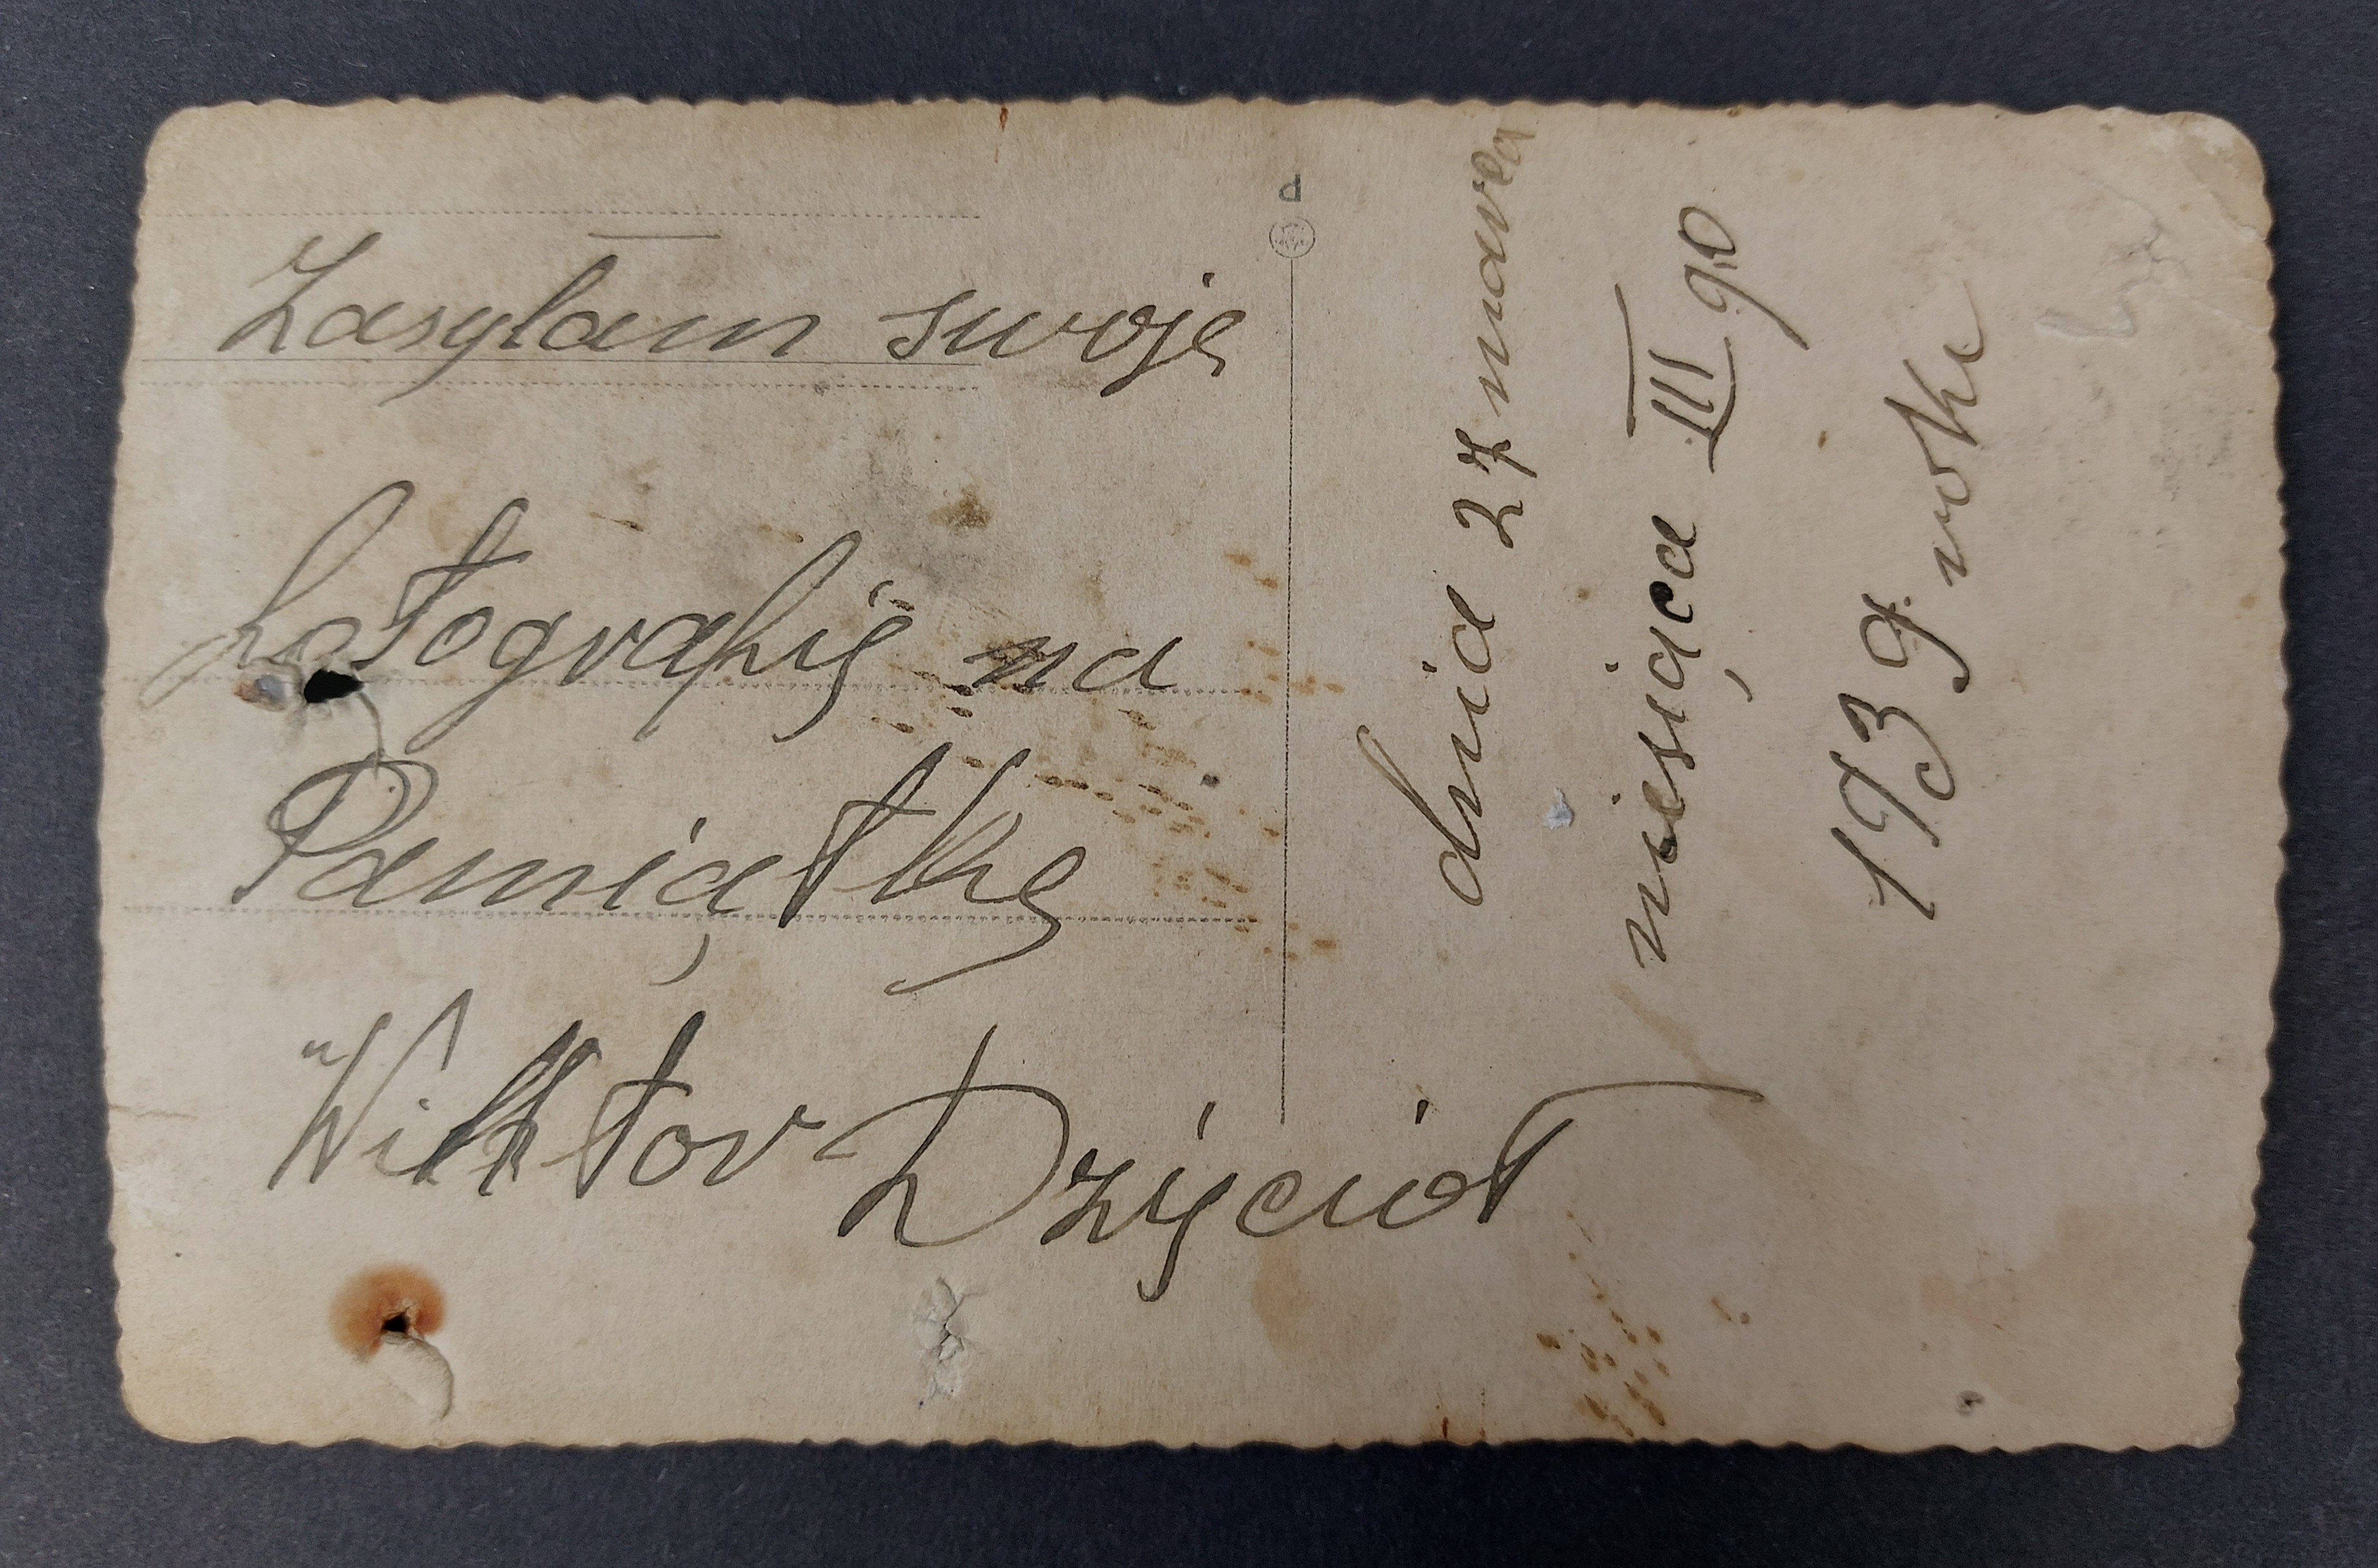 Zasyłam swoję
fotografię na
Pamiątkę
Wiktor Dzycioł
dnia 27 marca
miesiąca III go
1939 roku